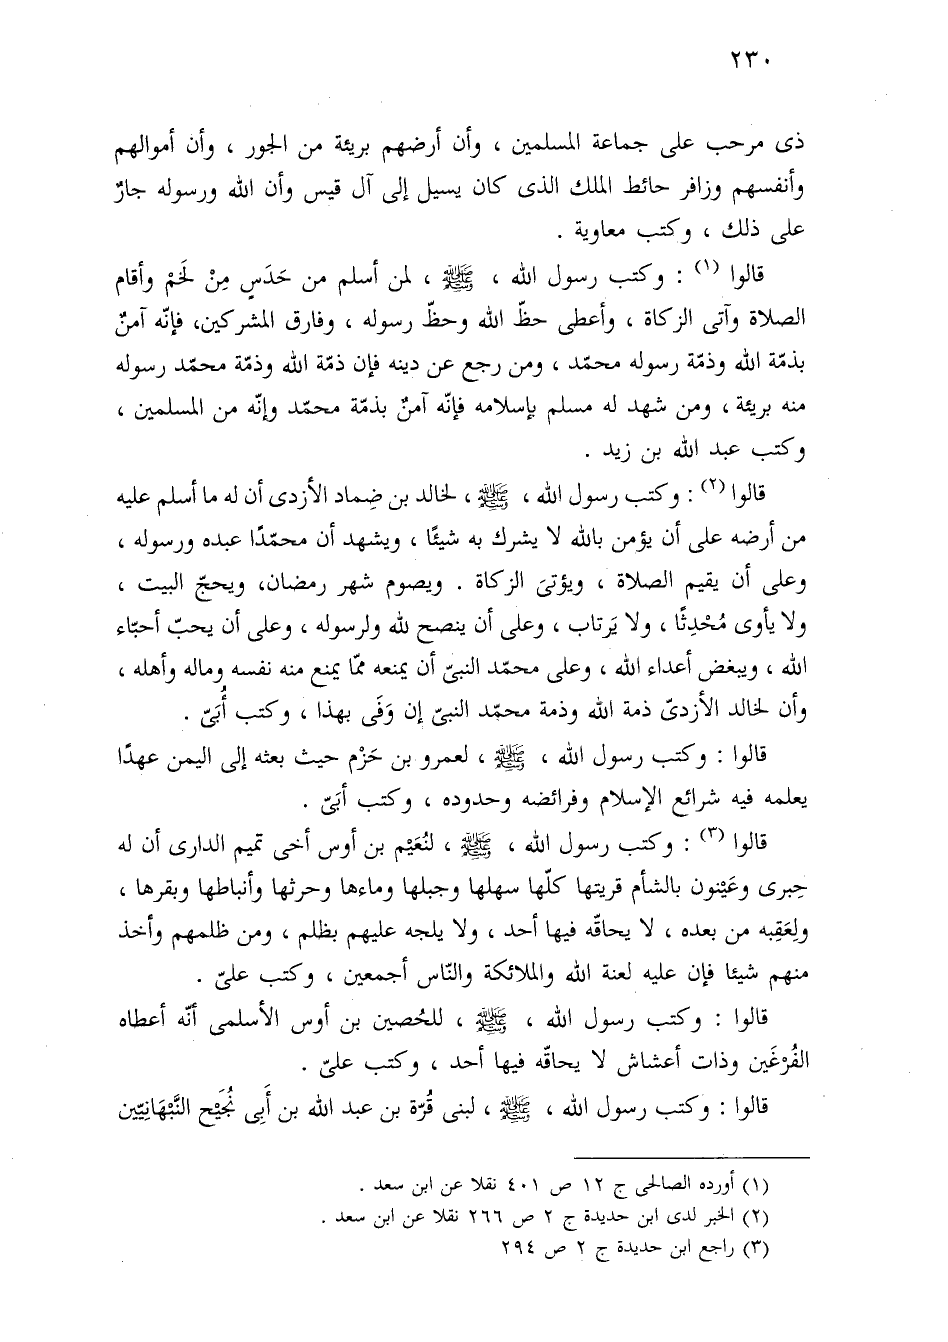 ٢٣٠
ذى مرحب على جماعة المسلمين ، وأن أرضهم بريئة من الجور ، وأن أموالهم
وأنفسهم وزافر حائط الملك الذى كان يسيل إلى آل قيس وأن الله ورسوله جارٌ
على ذلك ، وكتب معاوية .
قالوا (١) : وكتب رسول الله ، ﷺ ، لمن أسلم من حَدَسٍ مِنْ لَخَمْ وأقام
الصلاة وآتى الزكاة ، وأعطى حظّ الله وحظّ رسوله ، وفارق المشركين، فإنّه آمنٌ
بذمّة الله وذمّة رسوله محمّد ، ومن رجع عن دينه فإن ذمّة الله وذمّة محمّد رسوله
منه بريئة ، ومن شهد له مسلم بإسلامه فإنّه آمنٌ بذمّة محمّد وإنّه من المسلمين ،
وكتب عبد الله بن زيد .
قالوا (٢) : وكتب رسول الله ، ﷺ ، لخالد بن ضِماد الأزدى أن له ما أسلم عليه
من أرضه على أن يؤمن بالله لا يشرك به شيئًا ، ويشهد أن محمّدًا عبده ورسوله ،
وعلى أن يقيم الصلاة ، ويؤتىَ الزكاة . ويصوم شهر رمضان، ويحجّ البيت ،
ولا يأوى مُحْدِثًا ، ولا يَرتاب ، وعلى أن ينصح لله ولرسوله ، وعلى أن يحبّ أحبّاء
الله ، ويبغض أعداء الله ، وعلى محمّد النبىّ أن يمنعه ممّا يمنع منه نفسه وماله وأهله ،
وأن لخالد الأزدىّ ذمة الله وذمة محمّد النبىّ إن وَفَى بهذا ، وكتب أُبَىّ .
قالوا : وكتب رسول الله ، ﷺ ، لعمرو بن حَزْم حيث بعثه إلى اليمن عهدًا
يعلمه فيه شرائع الإسلام وفرائضه وحدوده ، وكتب أبَىّ .
قالوا (٣) : وكتب رسول الله ، ﷺ ، لنُعَيْم بن أوس أخى تميم الدارى أن له
حِبرى وعَيْنون بالشأم قريتها كلّها سهلها وجبلها وماءها وحرثها وأنباطها وبقرها ،
ولِعَقِبه من بعده ، لا يحاقّه فيها أحد ، ولا يلجه عليهم بظلم ، ومن ظلمهم وأخذ
منهم شيئا فإن عليه لعنة الله والملائكة والنّاس أجمعين ، وكتب علىّ .
قالوا : وكتب رسول الله ، ﷺ ، للحُصين بن أوس الأسلمى أنّه أعطاه
الفُرْغَين وذات أعشاش لا يحاقّه فيها أحد ، وكتب علىّ .
قالوا : وكتب رسول الله ، ﷺ ، لبنى قُرّة بن عبد الله بن أَبِى نُجَيْح النَّبْهَانِيّين
(١) أورده الصالحى ج ١٢ ص ٤٠١ نقلا عن ابن سعد .
(٢) الخبر لدى ابن حديدة ج ٢ ص ٢٦٦ نقلا عن ابن سعد .
(٣) راجع ابن حديدة ج ٢ ص ٢٩٤